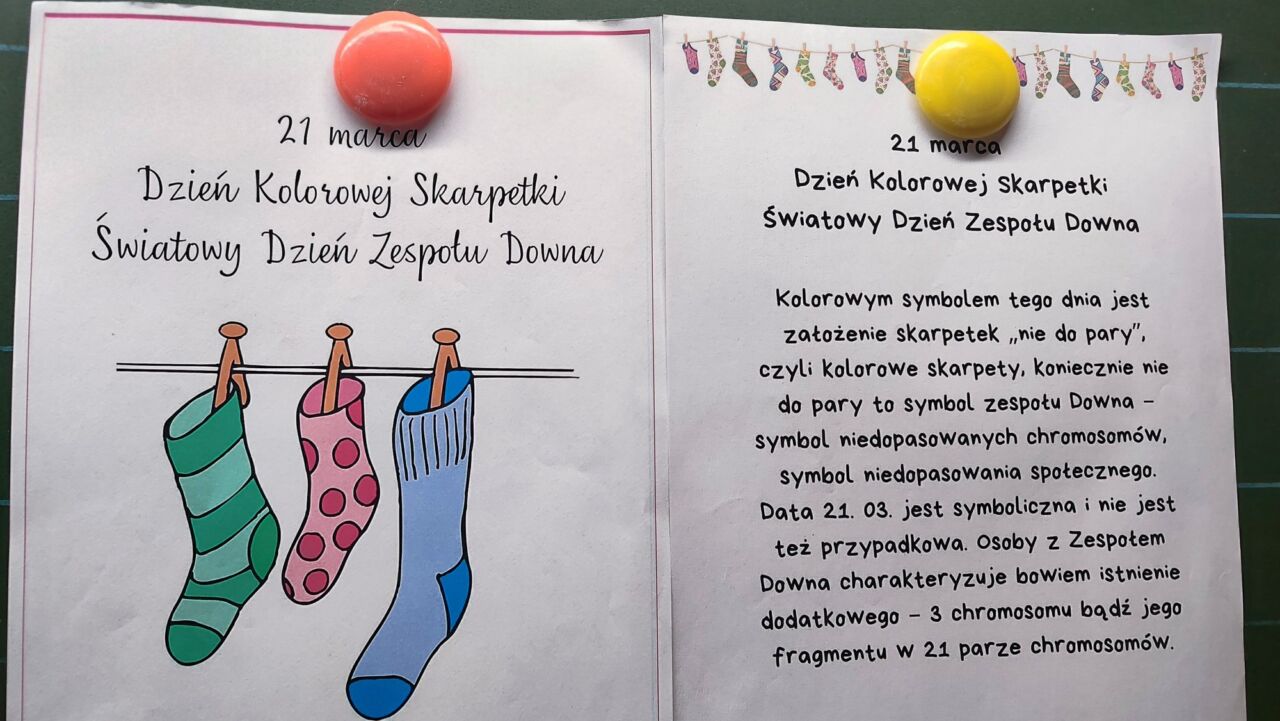 21 marca
Dzień Kolorowej Skarpetki
Światowy Dzień Zespołu Downa
21 marca
Dzień Kolorowej Skarpetki
Światowy Dzień Zespołu Downa
Kolorowym symbolem tego dnia jest
założenie skarpetek „nie do pary”,
czyli kolorowe skarpety, koniecznie nie
do pary to symbol zespołu Downa –
symbol niedopasowanych chromosomów,
symbol niedopasowania społecznego.
Data 21. 03. jest symboliczna i nie jest
też przypadkowa. Osoby z Zespołem
Downa charakteryzuje bowiem istnienie
dodatkowego – 3 chromosomu bądź jego
fragmentu w 21 parze chromosomów.